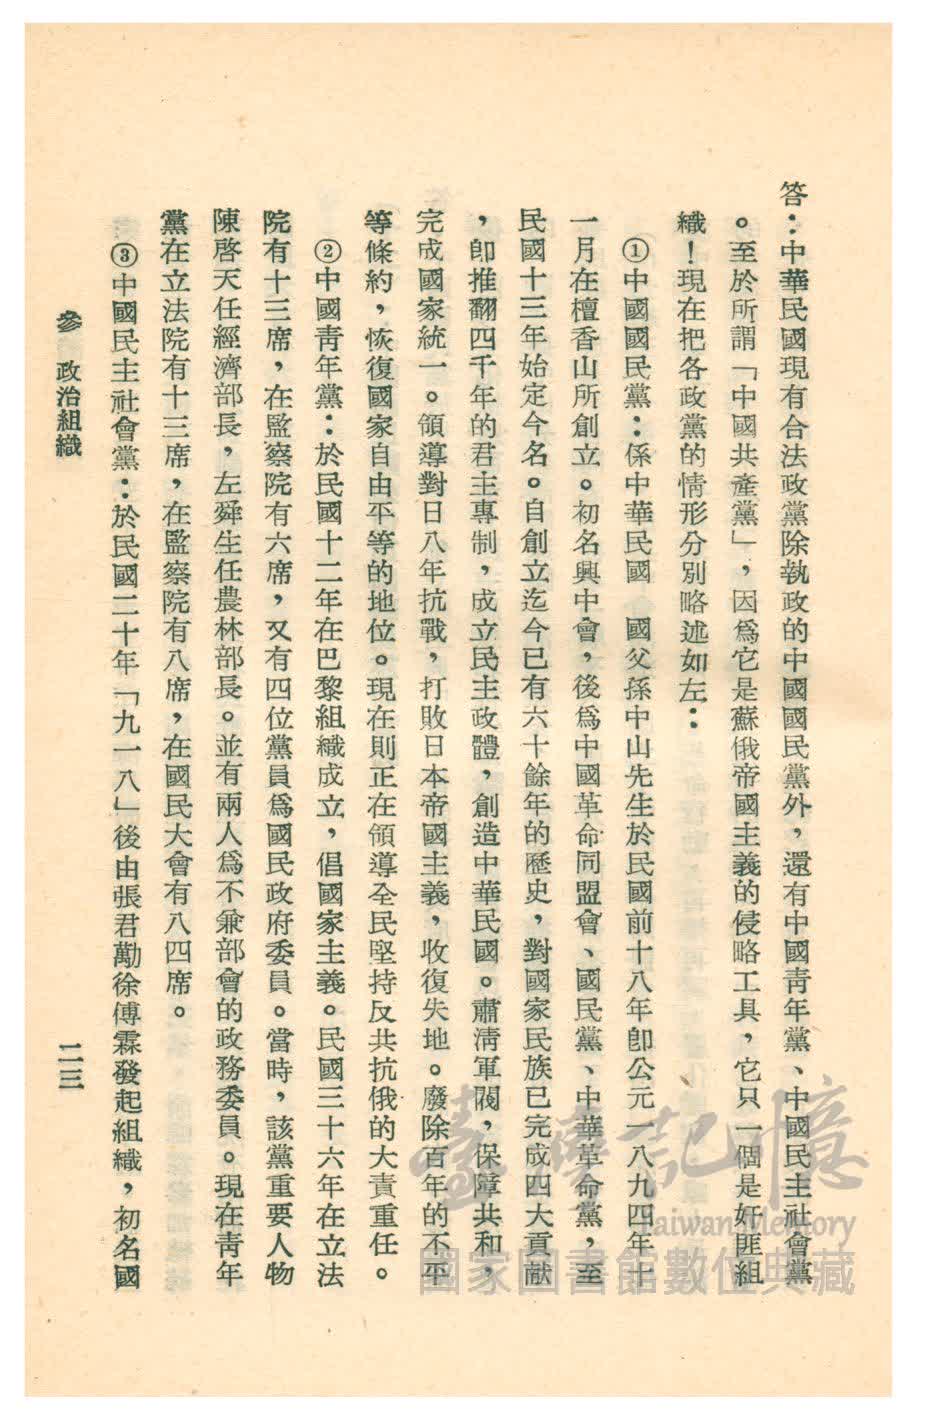 答：中華民國現有合法政黨除執政的中國國民黨外，還有中國靑年黨、中國民主社會黨
。至於所謂「中國共產黨」，因爲它是蘇俄帝國主義的侵略工具，它只一個是奸匪組
織！現在把各政黨的情形分別略述如左：
①中國國民黨：係中華民國　國父孫中山先生於民國前十八年卽公元一八九四年十
一月在檀香山所創立。初名興中會，後爲中國革命同盟會、國民黨、中華革命黨，至
民國十三年始定今名。自創立迄今已有六十餘年的歷史，對國家民族已完成四大貢獻
，卽推翻四千年的君主專制，成立民主政體，創造中華民國。肅淸軍閥，保障共和，
完成國家統一。領導對日八年抗戰，打敗日本帝國主義，收復失地。廢除百年的不平
等條約，恢復國家自由平等的地位。現在則正在領導全民堅持反共抗俄的大責重任。
②中國靑年黨：於民國十二年在巴黎組織成立，倡國家主義。民國三十六年在立法
院有十三席，在監察院有六席，又有四位黨員爲國民政府委員。當時，該黨重要人物
陳啓天任經濟部長，左舜生任農林部長。並有兩人爲不兼部會的政務委員。現在靑年
黨在立法院有十三席，在監察院有八席，在國民大會有八四席。
③中國民主社會黨：於民國二十年「九一八」後由張君勱徐傅霖發起組織，初名國
參　政治組織
二三
臺灣記憶
Taiwan Memory
國家圖書館數位典藏